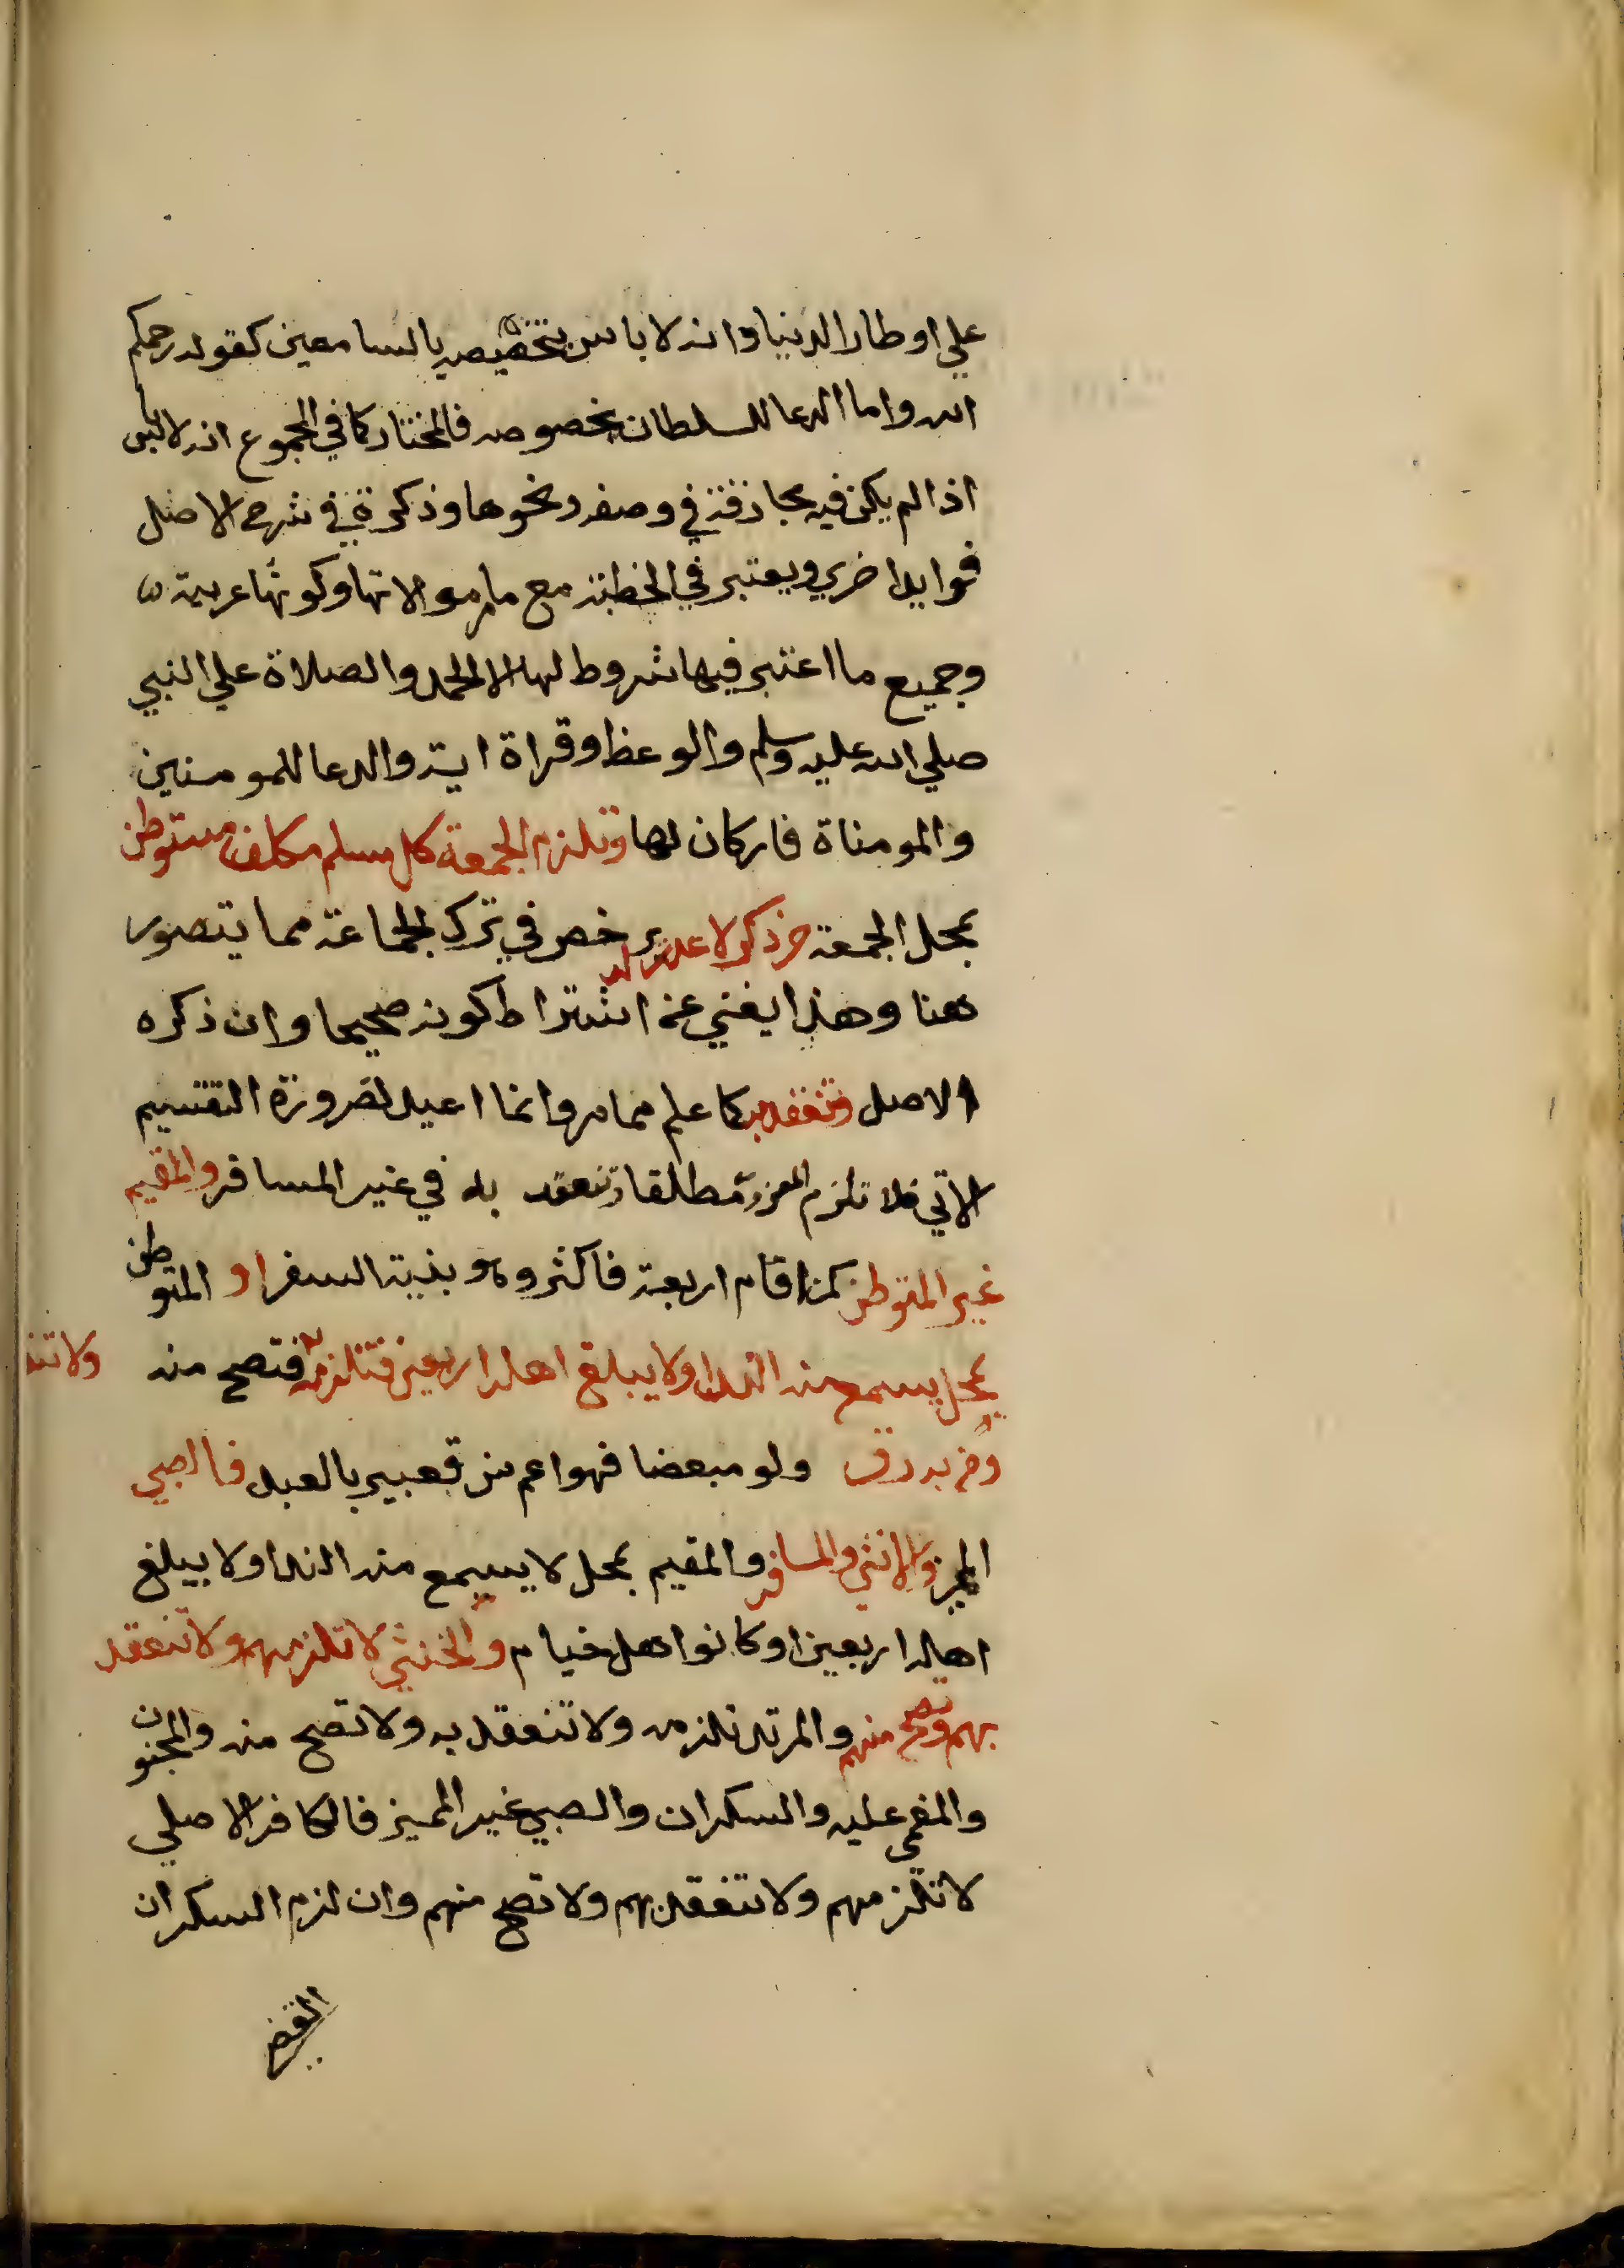 علي اوطار الدنيا وانه لا باس بتخصيصه بالسامعين كقوله رحمكم
الله واما الدعا للسلطان بخصوصه فالمختار كما في المجموع انه لا باس
اذا لم يكن فيه مجازفة في وصفه ونحوها وذكرة في شرح الاصل
فوايد اخري ويعتبر في الخطبة مع ما مر موالاتها وكونها عربية
وجميع ما اعتبر فيها شروط لها الا الحمد والصلاة علي النبي
صلي الله عليه وسلم والوعظ وقراة اية والدعا للمومنين
والمومناة فاركان لها وتلزم الجمعة كل مسلم مكلف مستوطن
بمحل الجمعة حر ذكر لا عذر له يرخص في ترك الجماعة مما يتصور
هنا وهذا يغني عن اشتراط كونه صحيحا وان ذكره
الاصل وتنعقد به كما علم مما مر وانما اعيد لضرورة التقسيم
الاتي فلا تلزم المعزور مطلقا وتنعقد به في غير المسافر والمقيم
غير المتوطن كمن اقام اربعة فاكثر وهو بنية السفر او المتوطن
بمحل يسمع منه الندا ولا يبلغ اهله اربعين فتلزمه فتصح منه ولا تنـ
ومن به رق ولو مبعضا فهو اعم من تعبير بالعبد فالصبي
الميز والانثي والمسافر والمقيم بمحل لا يسمع منه الندا ولا يبلغ
اهله اربعين او كانوا اهل خيام والخنثي لا تلزمهم ولا تنعقد
بهم وتصح منهم والمرتد تلزمه ولا تنعقد به ولا تصح منه والمجنون
والمغمي عليه والسكران والصبي غير المميز فالكافر الاصلي
لا تلزمهم ولا تنعقد بهم ولا تصح منهم وان لزم السكران
القضا